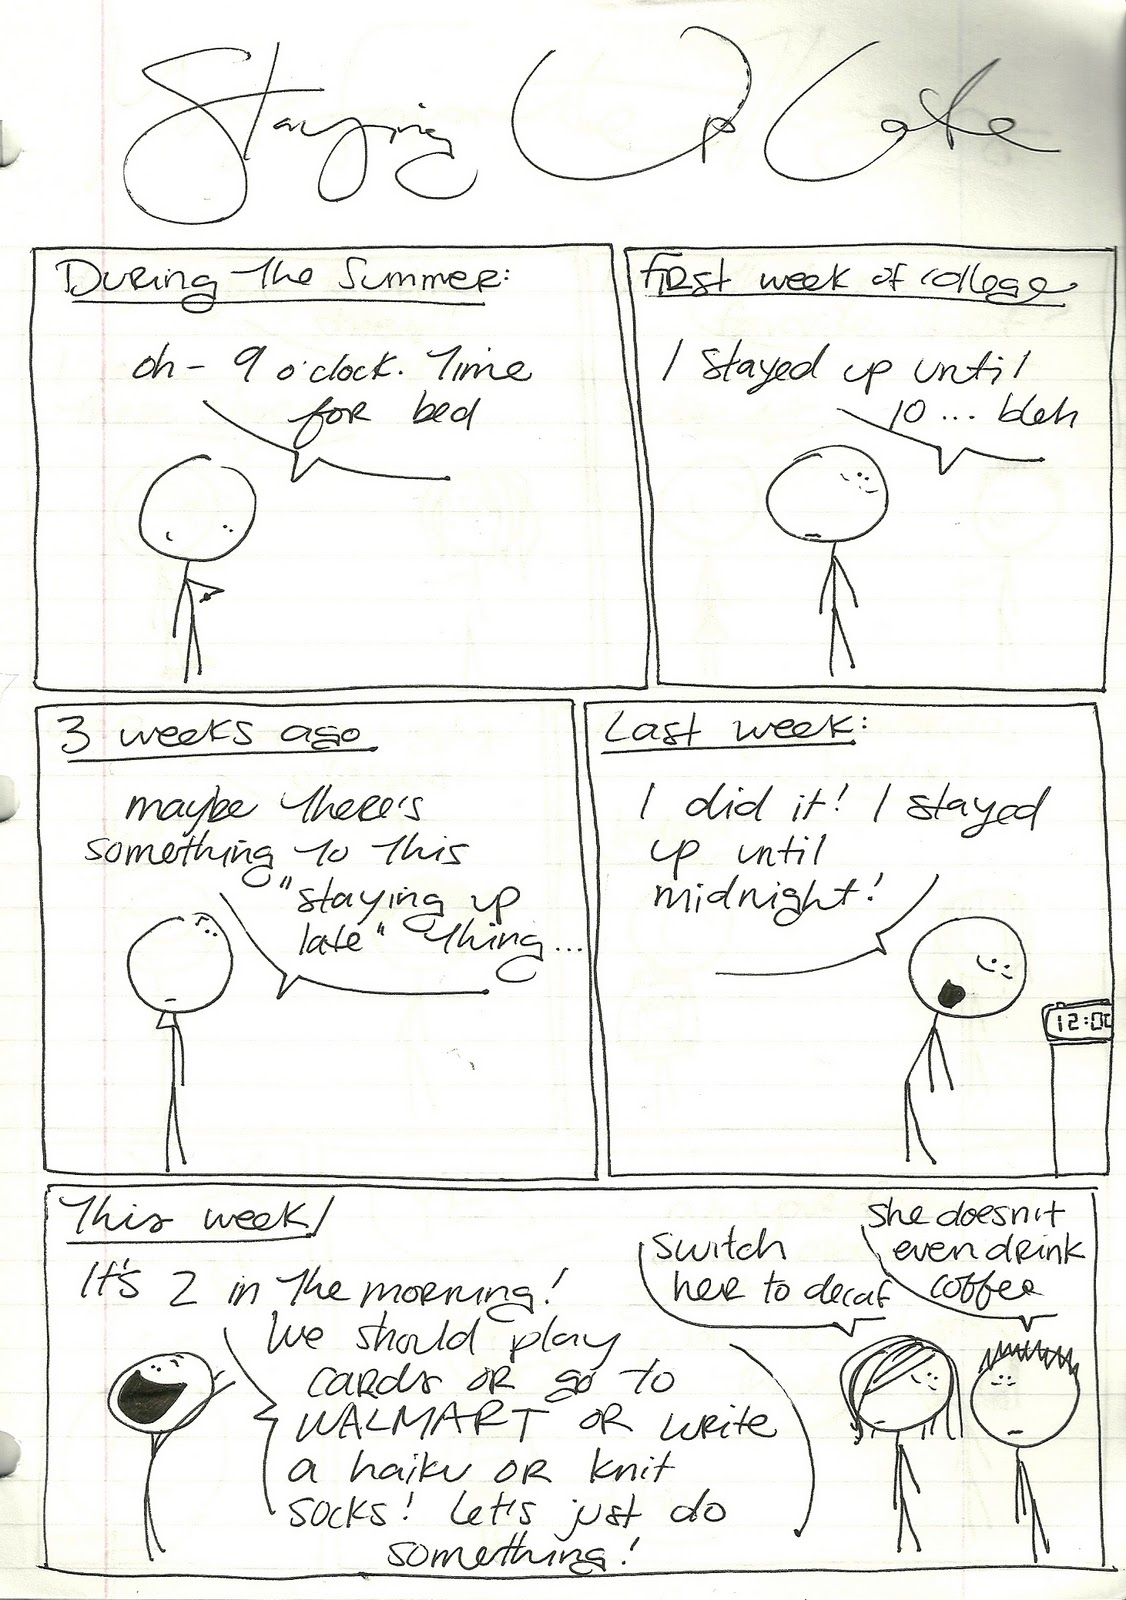 Staying Up Late
During the Summer:
oh - 9 o'clock. Time
for bed
first week of college
I stayed up until
10 ... bleh
3 weeks ago
maybe there's
something to this
"staying up
late" thing...
Last week:
I did it! I stayed
up until
midnight!
12:00
This week!
It's 2 in the morning!
We should play
cards or go to
WALMART or write
a haiku or knit
socks! Let's just do
something!
Switch
her to decaf
She doesn't
even drink
coffee